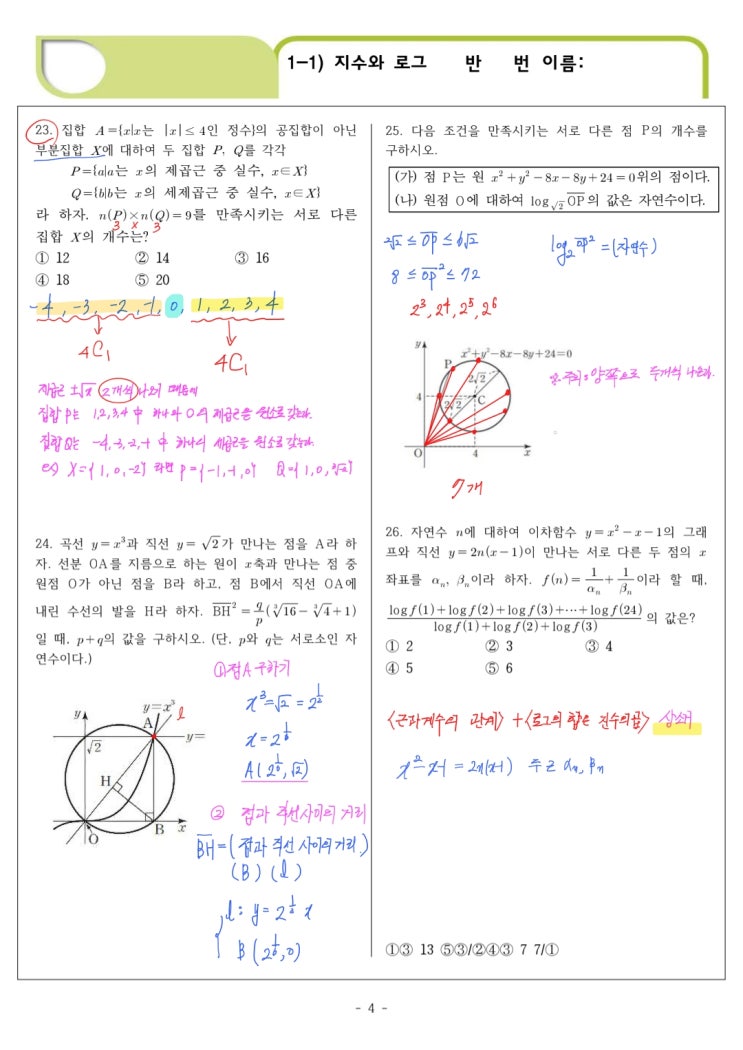 1-1) 지수와 로그 반 번 이름:
23. 집합 A={x|x는 |x|≤4인 정수}의 공집합이 아닌
부분집합 X에 대하여 두 집합 P, Q를 각각
P={a|a는 x의 제곱근 중 실수, x∈X}
Q={b|b는 x의 세제곱근 중 실수, x∈X}
라 하자. n(P)×n(Q)=9를 만족시키는 서로 다른
3 × 3
집합 X의 개수는?
① 12 ② 14 ③ 16
④ 18 ⑤ 20
-4, -3, -2, -1, 0, 1, 2, 3, 4
4C1 4C1
제곱근 ±√x 2개씩 나오기 때문에
집합 P는 1,2,3,4 中 하나와 0의 제곱근을 원소로 갖는다.
집합 Q는 -4,-3,-2,-1 中 하나의 세제곱근을 원소로 갖는다.
ex) X={1, 0, -2} 라면 P={-1, 1, 0}
24. 곡선 y=x³과 직선 y=√2가 만나는 점을 A라 하
자. 선분 OA를 지름으로 하는 원이 x축과 만나는 점 중
원점 O가 아닌 점을 B라 하고, 점 B에서 직선 OA에
내린 수선의 발을 H라 하자. BH²=q/p(∛16-∛4+1)
일 때, p+q의 값을 구하시오. (단, p와 q는 서로소인 자
연수이다.)
① 점A 구하기
x³=√2=2^(1/2)
x=2^(1/6)
A(2^(1/6), √2)
y y=x³ l
A
√2 y=
H
O B x
② 점과 직선사이의 거리
BH=(점과 직선 사이의 거리)
(B) (l)
B(2^(1/6), 0)
25. 다음 조건을 만족시키는 서로 다른 점 P의 개수를
구하시오.
(가) 점 P는 원 x²+y²-8x-8y+24=0위의 점이다.
(나) 원점 O에 대하여 log_√2 OP의 값은 자연수이다.
2√2 ≤ OP ≤ 6√2 log₂OP²=(자연수)
8 ≤ OP² ≤ 72
2³, 2⁴, 2⁵, 2⁶
y x²+y²-8x-8y+24=0
P
2√2
4 C
2√2
O 4 x
7개
26. 자연수 n에 대하여 이차함수 y=x²-x-1의 그래
프와 직선 y=2n(x-1)이 만나는 서로 다른 두 점의 x
좌표를 αₙ, βₙ이라 하자. f(n)=1/αₙ+1/βₙ이라 할 때,
(log f(1)+log f(2)+log f(3)+⋯+log f(24))/(log f(1)+log f(2)+log f(3))의 값은?
① 2 ② 3 ③ 4
④ 5 ⑤ 6
<근과계수의 관계> + <로그의 합은 진수의곱> 상쇄
x²-x-1 = 2n(x-1) 두근 αₙ, βₙ
①③ 13 ⑤③/②④③ 7 7/①
- 4 -